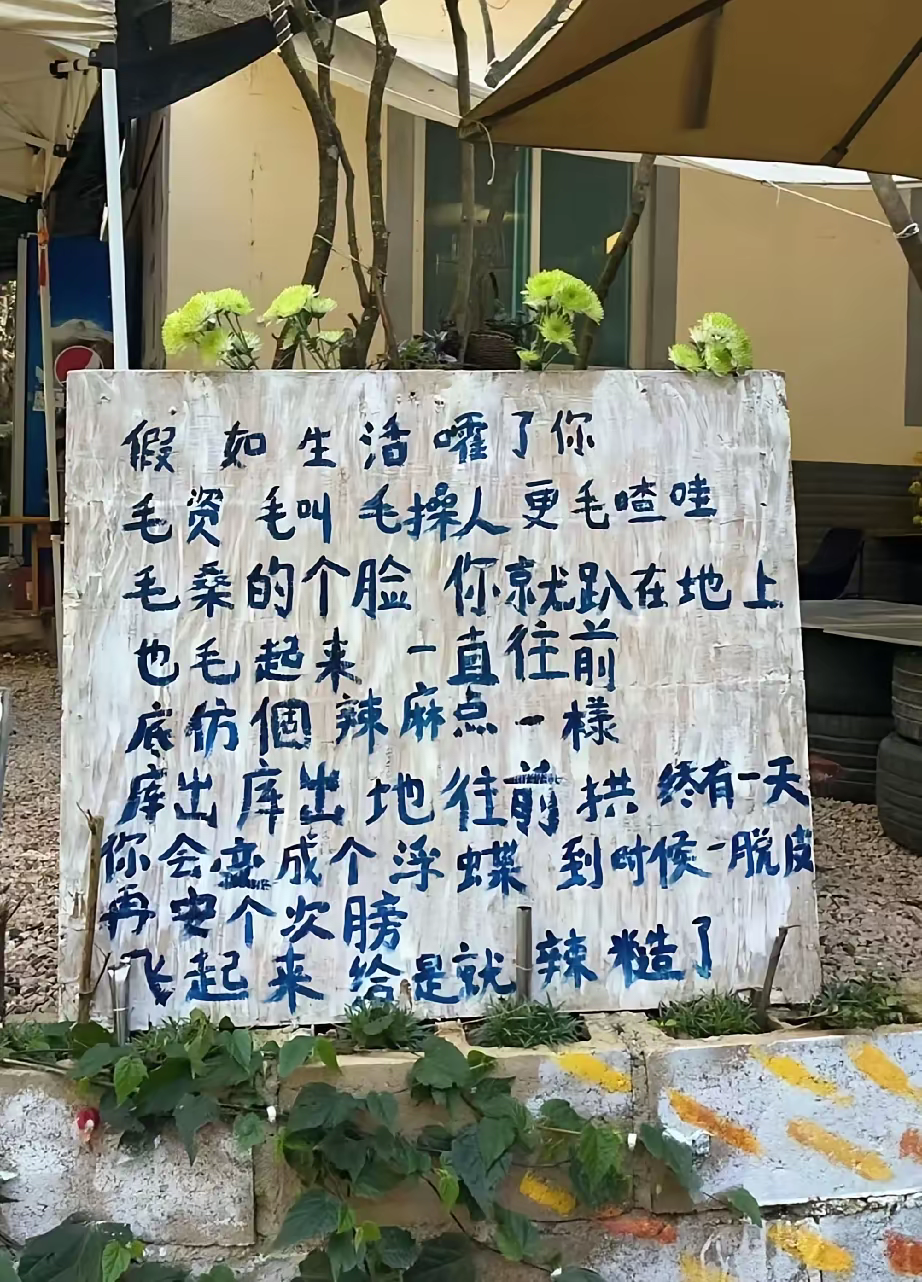 假如生活嚯了你
毛资 毛叫 毛操人 更毛喳哇
毛桑的个脸 你就趴在地上
也毛起来 一直往前
底仿個辣麻点一樣
库出库出地往前拱 终有一天
你会变成个浮蝶 到时候一脱皮
再安个次膀
飞起来 给是就辣糙了